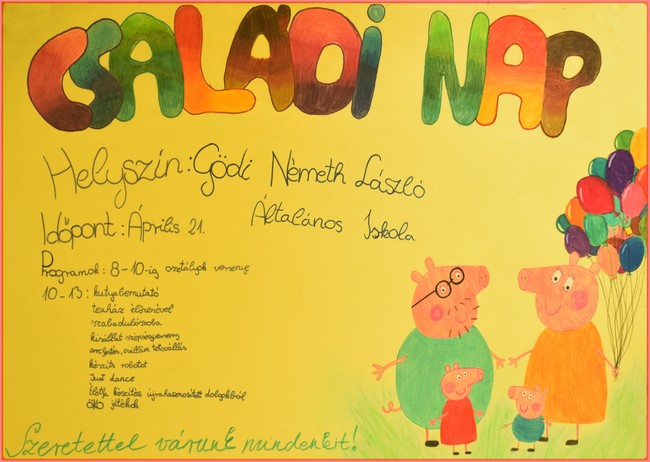 CSALÁDI NAP
Helyszín: Gödi Németh László
Általános Iskola
Időpont: Április 21.
Programok: 8-10-ig osztályok versenye
10-13: kutyabemutató
teaház élőzenével
szabadulószoba
kisállat szépségverseny
arcfestés, csillám tetoválás
készíts robotot
Just dance
Életfa készítés újrahasznosított dolgokból
ÖKO játékok
Szeretettel várunk mindenkit!